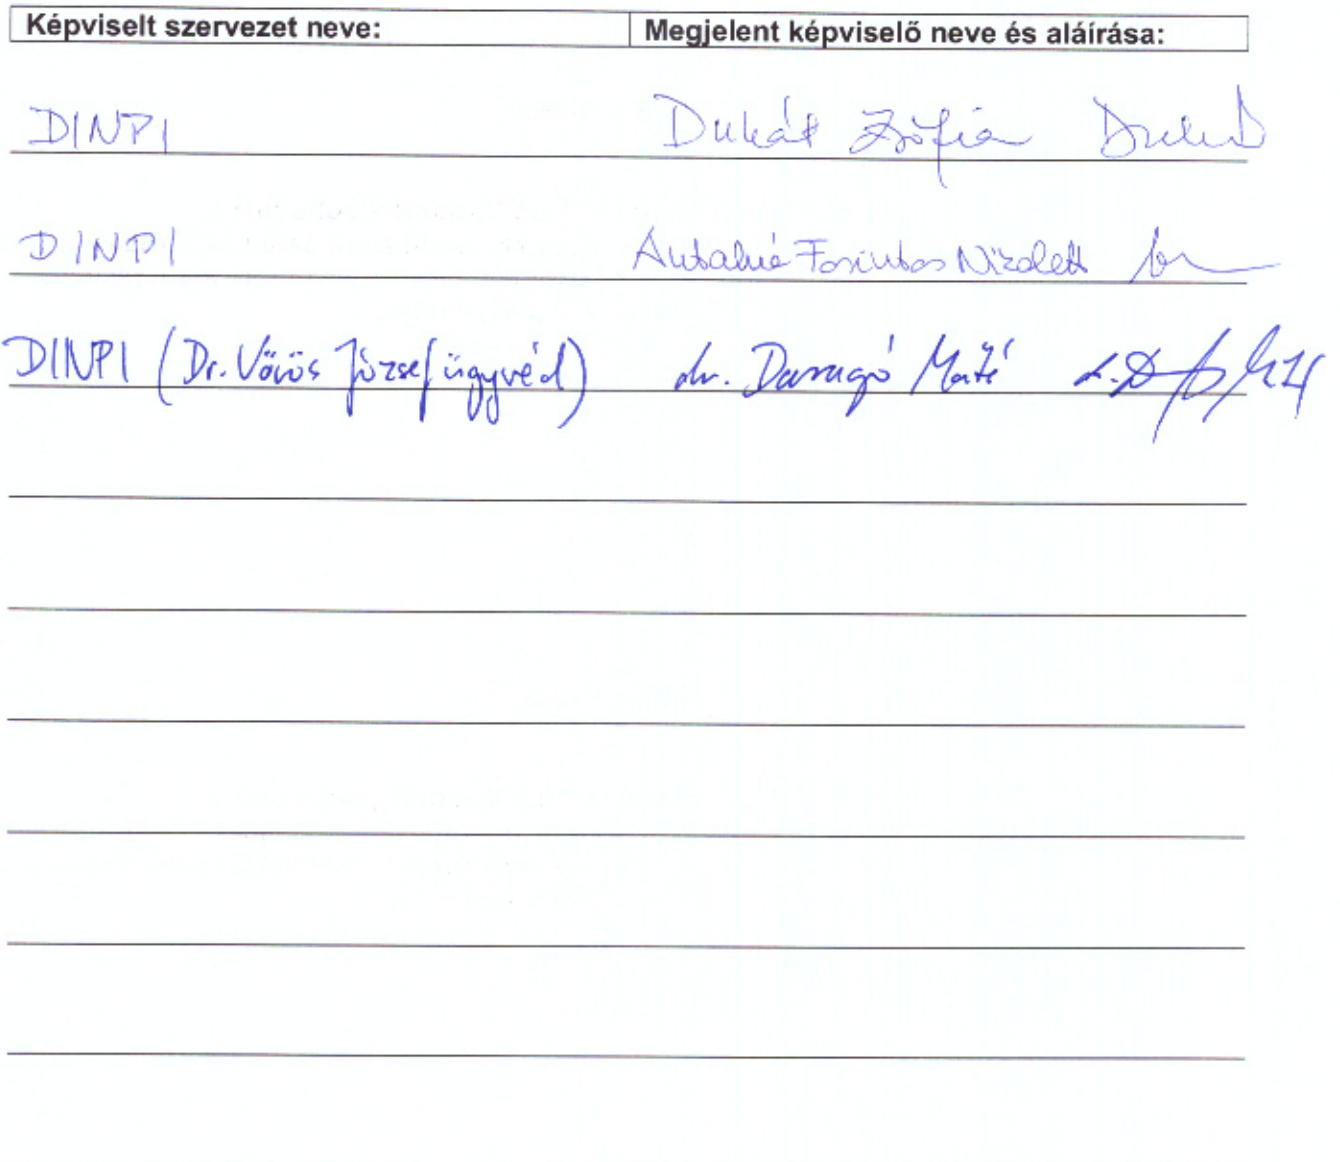 Képviselt szervezet neve: Megjelent képviselő neve és aláírása:
DINPI Dukát Zsófia
DINPI Antalné Forintos Nikolett
DINPI (Dr. Vörös József ügyvéd) dr. Daragó Máté